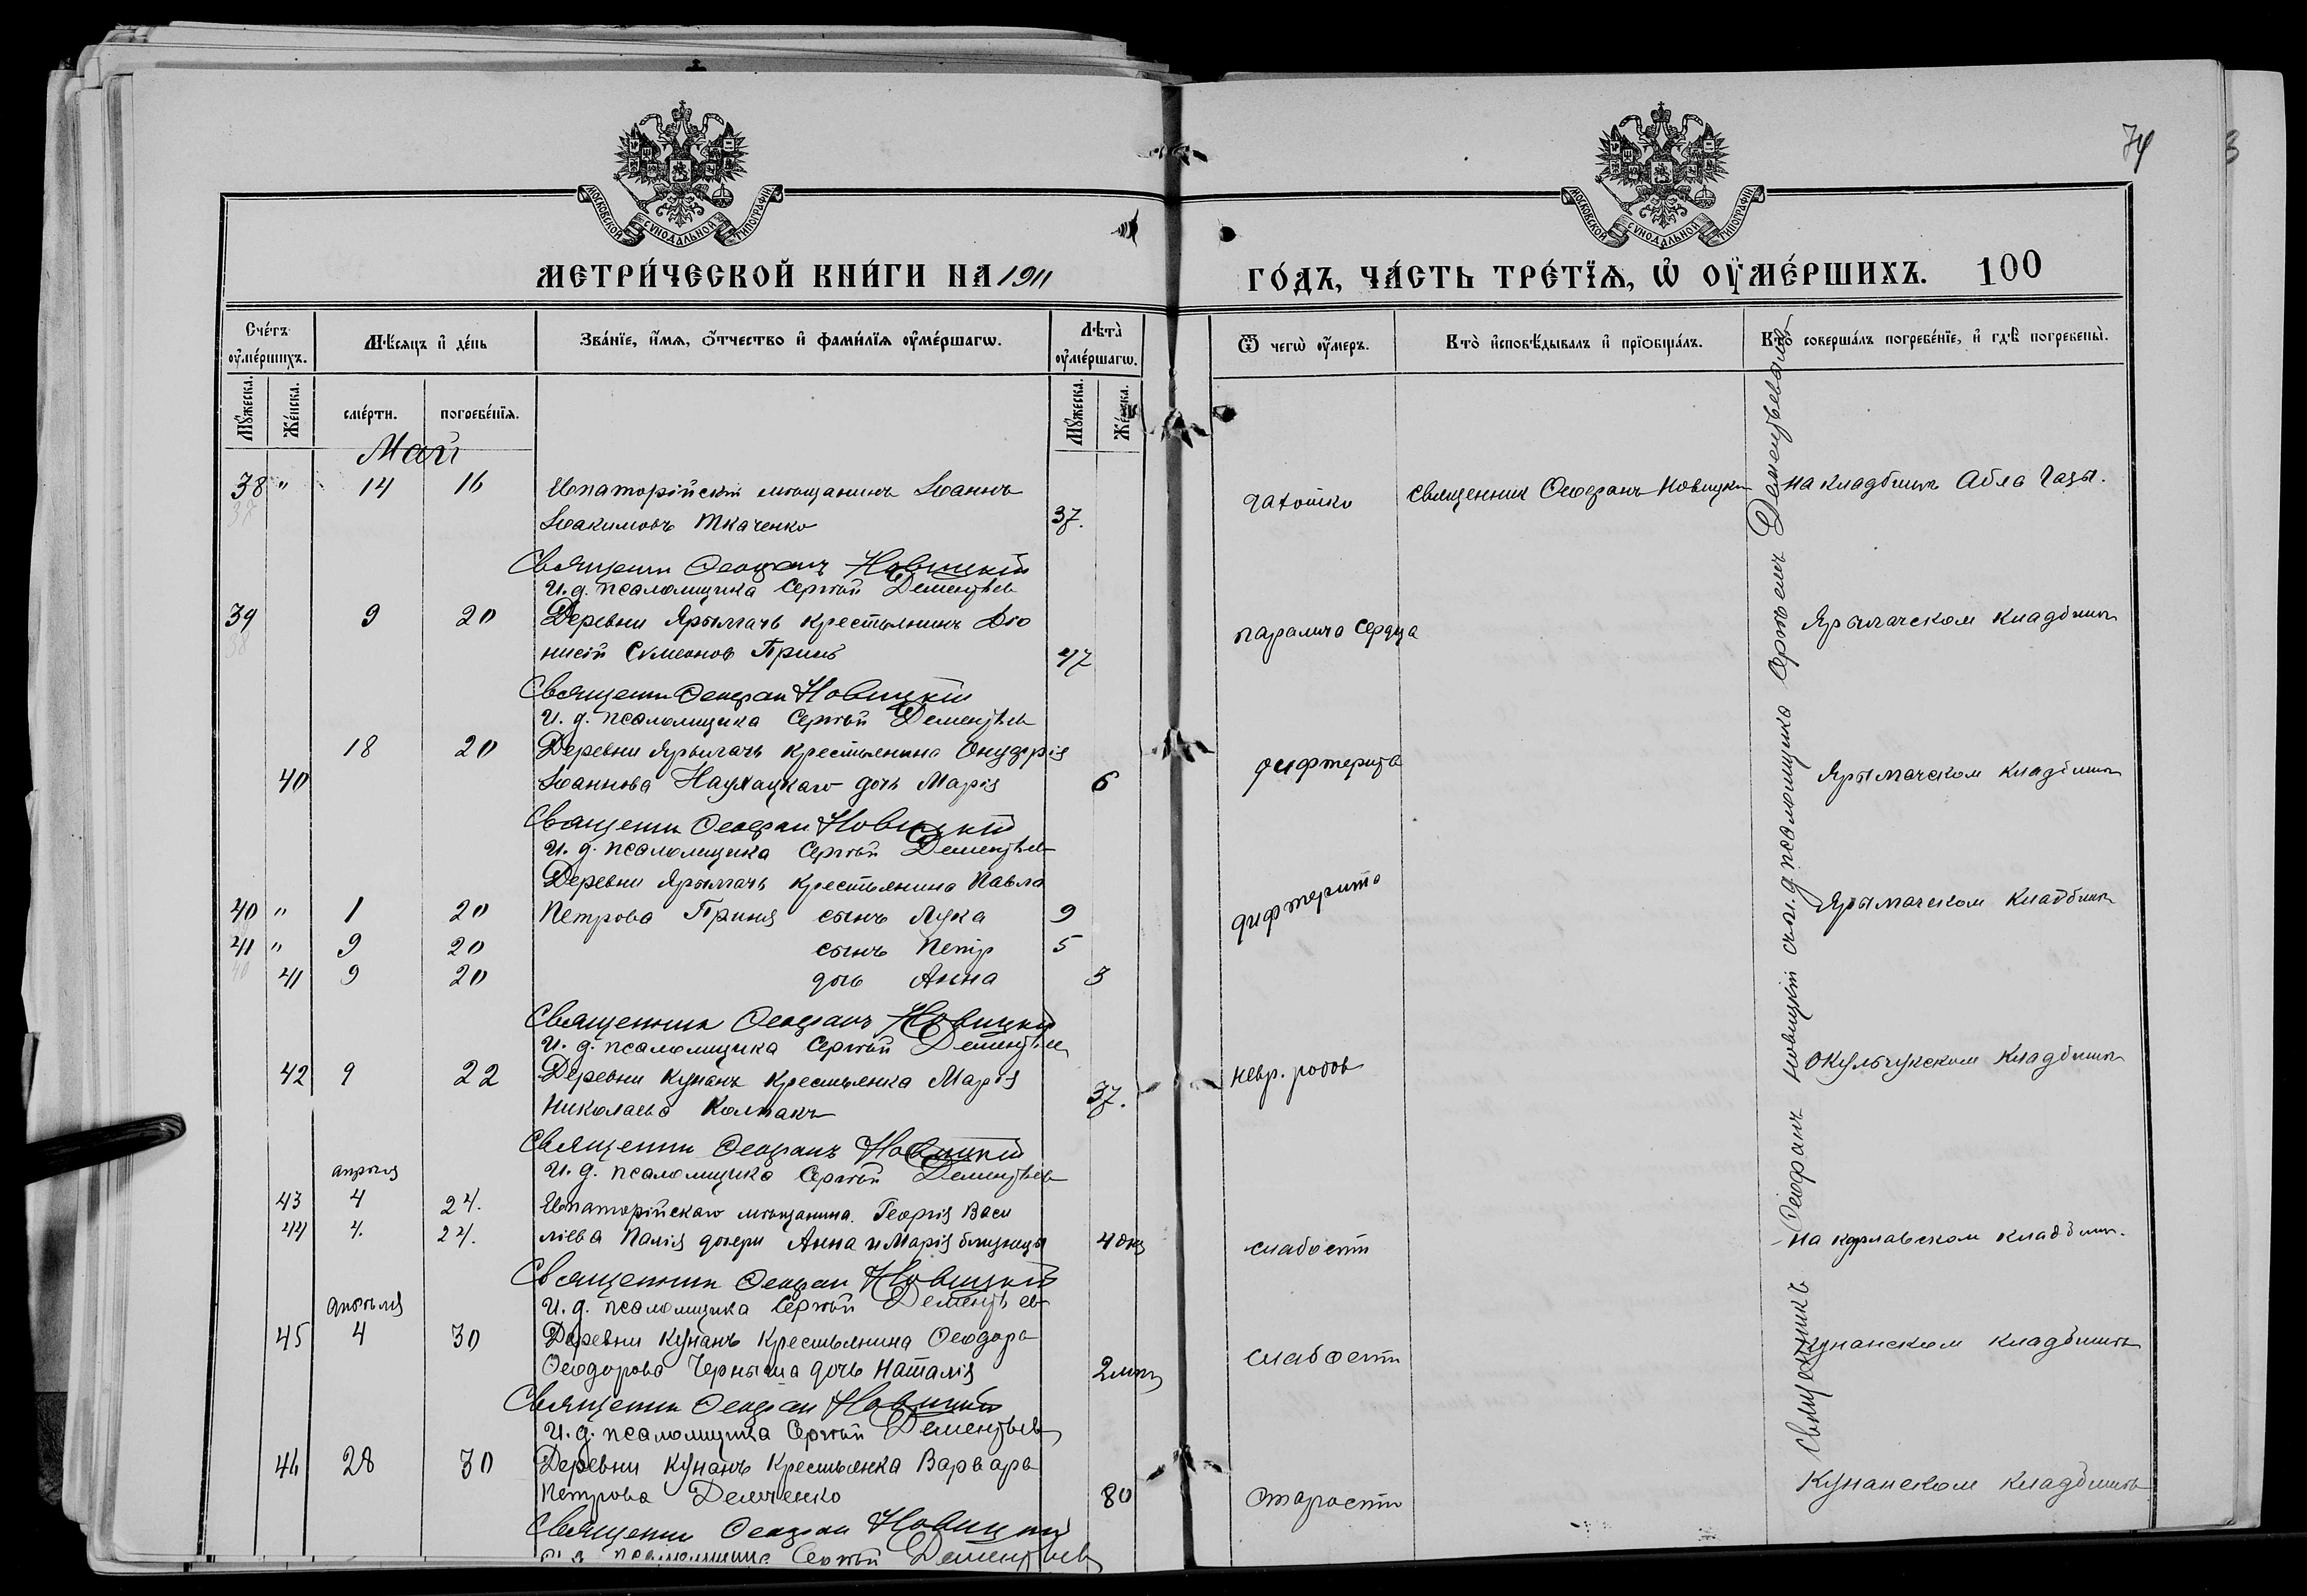 74
3
МОСКОВСКОЙ СѴНОДАЛЬНОЙ ТИПОГРАФІИ
МОСКОВСКОЙ СѴНОДАЛЬНОЙ ТИПОГРАФІИ
МЕТРИ́ЧЕСКОЙ КНИ́ГИ НА 1911
ГО́ДЪ, ЧА́СТЬ ТРЕ́ТЇѦ, Ѡ҆ ОУ҆МЕ́РШИХЪ. 100
Сче́тъ оу҆ме́ршихъ.
Мѣ́сяцъ и҆ де́нь
Зва́нїе, и҆́мѧ, ѻ҆́тчество и҆ фами́лїѧ оу҆ме́ршагѡ.
Лѣ́та оу҆ме́ршагѡ.
Ѿ чегѡ̀ оу҆́меръ.
Кто̀ и҆сповѣ́дывалъ и҆ прїѡбща́лъ.
Кто̀ соверша́лъ погребе́нїе, и҆ гдѣ̀ погребены̀.
Мꙋ́жеска.
Же́нска.
сме́рти.
погребе́нїѧ.
Мꙋ́жеска.
Же́нска.
Май
38 " 14 16 Евпаторійскій мѣщанинъ Іоаннъ
37
Іоакимовъ Ткаченко 37. чахотки Священник Ѳеофанъ Новицкій на кладбищѣ Абла Газы.
Священник Ѳеофанъ Новицкій
И. д. псаломщика Сергѣй Дементьев
39 9 20 Деревни Ярылгачъ крестьянинъ Діо
38
нисій Симеонов Гринь 47 паралича сердца Ярылгачском кладбищѣ
Священник Ѳеофан Новицкій
И. д. псаломщика Сергѣй Дементьев
18 20 Деревни Ярылгачъ крестьянина Онуфрія
40 Іоаннова дочь Марія 6 дифтерита Ярылгачском кладбищѣ
Священник Ѳеофан Новицкій
И. д. псаломщика Сергѣй Дементьев
Деревни Ярылгачъ крестьянина Павла
40 " 1 20 Петрова Гриня сынъ Лука 9 дифтерита Ярылгачском кладбищѣ
41 " 9 20 сынъ Петр 5
40
41 9 20 дочь Анна 3
Священник Ѳеофанъ Новицкій
И. д. псаломщика Сергѣй Дементьев
42 9 22 Деревни Кунанъ крестьянка Марія
Николаева Колпакъ 37. невр. родов Окульчукском кладбищѣ
Священник Ѳеофанъ Новицкій
И. д. псаломщика Сергѣй Дементьев
апрѣля
43 4 24. Евпаторійскаго мѣщанина Георгія Васи
44 4. 24. ліева Палія дочери Анна и Марія близнецы 4 дня слабости на кладбищѣ.
Священник Ѳеофан Новицкій
И. д. псаломщика Сергѣй Дементьев
апрѣля
45 4 30 Деревни Кунанъ крестьянина Ѳеодора
Ѳеодорова Черныша дочь Наталія слабости Кунанском кладбищѣ
Священник Ѳеофан Новицкій
И. д. псаломщика Сергѣй Дементьев
46 28 30 Деревни Кунанъ крестьянка Варвара
Петрова Демченко 80 старости Кунанском кладбищѣ
Священник Ѳеофан Новицкій
И. д. псаломщика Сергѣй Дементьев
Священникъ Ѳеофанъ Новицкій съ и. д. псаломщика Сергѣемъ Дементьевымъ